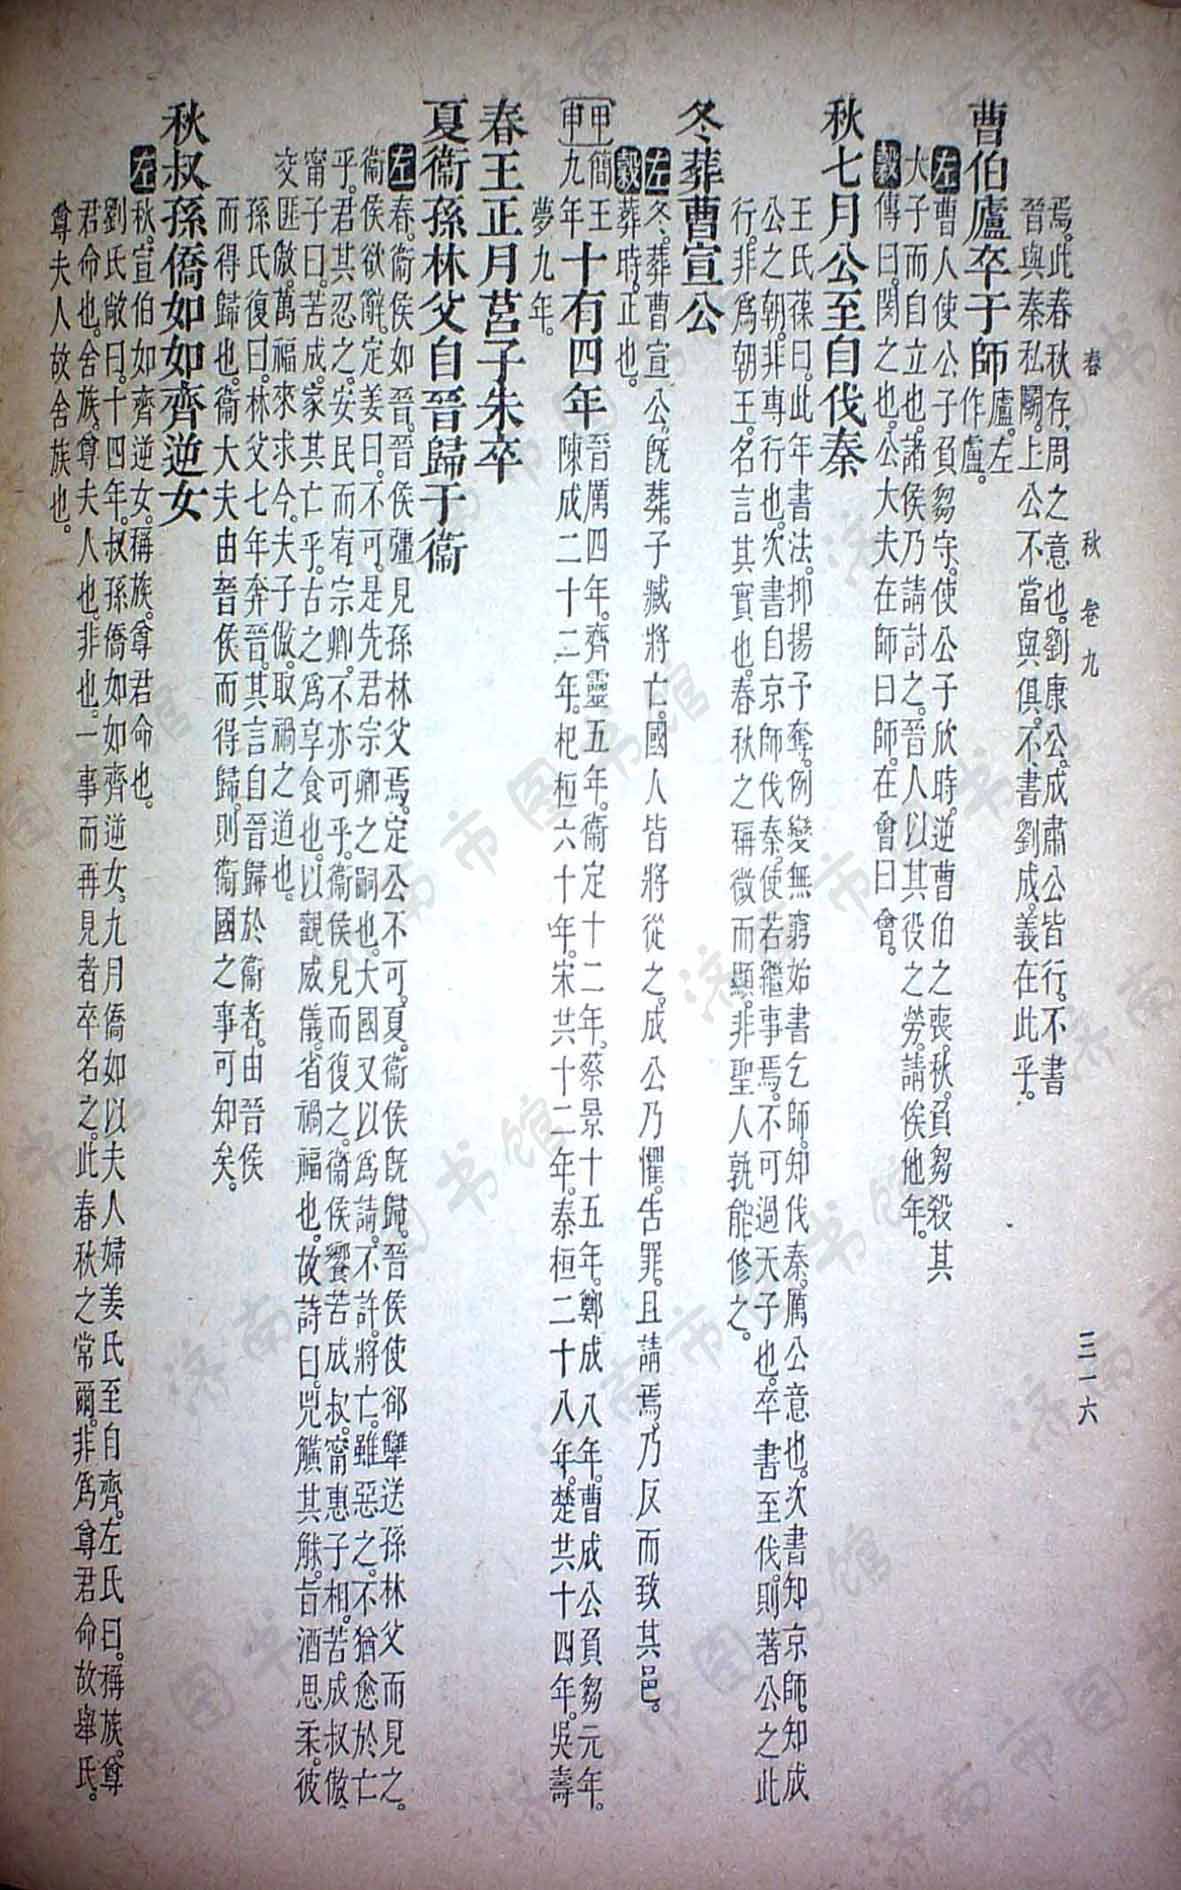 春　秋　卷九　三一六
焉。此春秋存周之意也。劉康公。成肅公皆行。不書
晉與秦私鬭。上公不當與俱。不書劉成。義在此乎。
曹伯廬卒于師廬。左作盧。
左曹人使公子負芻守。使公子欣時。逆曹伯之喪。秋。負芻殺其
大子而自立也。諸侯乃請討之。晉人以其役之勞。請俟他年。
穀傳曰。閔之也。公大夫在師曰師。在會曰會。
秋七月公至自伐秦
王氏葆曰。此年書法。抑揚予奪。例變無窮。始書乞師。知伐秦。厲公意也。次書如京師。知成
公之朝。非專行也。次書自京師伐秦。使若繼事焉。不可過天子也。卒書至伐。則著公之此
行。非爲朝王。名言其實也。春秋之稱微而顯。非聖人孰能修之。
冬葬曹宣公
左冬。葬曹宣公。旣葬。子臧將亡。國人皆將從之。成公乃懼。吿罪。且請焉。乃反而致其邑。
穀葬時。正也。
甲申簡王九年十有四年晉厲四年。齊靈五年。衞定十二年。蔡景十五年。鄭成八年。曹成公負芻元年。
陳成二十二年。杞桓六十年。宋共十二年。秦桓二十八年。楚共十四年。吳壽
夢九年。
春王正月莒子朱卒
夏衞孫林父自晉歸于衞
左春。衞侯如晉。晉侯彊見孫林父焉。定公不可。夏。衞侯旣歸。晉侯使郤犫送孫林父而見之。
衞侯欲辭。定姜曰。不可。是先君宗卿之嗣也。大國又以爲請。不許。將亡。雖惡之。不猶愈於亡
乎。君其忍之。安民而宥宗卿。不亦可乎。衞侯見而復之。衞侯饗苦成叔。甯惠子相。苦成叔傲。
甯子曰。苦成家其亡乎。古之爲享食也。以觀威儀。省禍福也。故詩曰。兕觵其觩。旨酒思柔。彼
交匪傲。萬福來求。今夫子傲。取禍之道也。
孫氏復曰。林父七年奔晉。其言自晉歸於衞者。由晉侯
而得歸也。衞大夫由晉侯而得歸。則衞國之事可知矣。
秋叔孫僑如如齊逆女
左秋。宣伯如齊逆女。稱族。尊君命也。
劉氏敞曰。十四年。叔孫僑如如齊逆女。九月僑如以夫人婦姜氏至自齊。左氏曰。稱族。尊
君命也。舍族。尊夫人也。非也。一事而再見者卒名之。此春秋之常爾。非爲尊君命故舉氏。
尊夫人故舍族也。